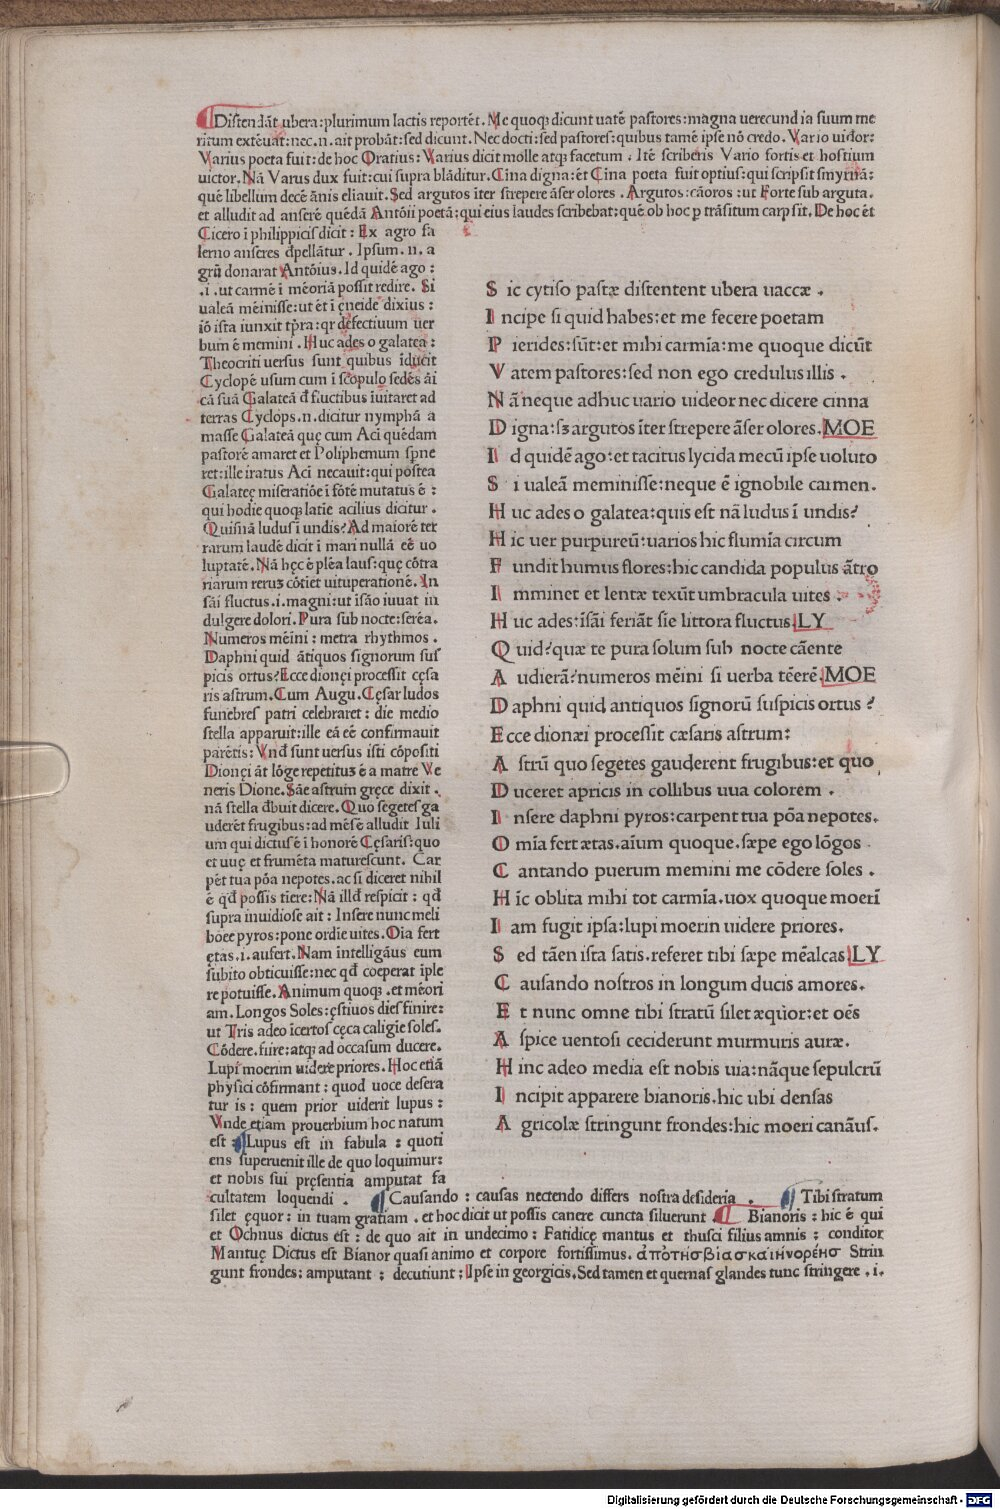 Distendāt ubera: plurimum lactis reportēt. Me quoqꝫ dicunt uatē pastores: magna uerecundia suum me
ritum extēuat: nec .n. ait probāt: sed dicunt. Nec docti: sed pastores: quibus tamē ipse nō credo. Vario uidor:
Varius poeta fuit: de hoc Oratius: Varius dicit molle atqꝫ facetum. Itē scriberis Vario fortis et hostium
uictor. Nā Varus dux fuit: cui supra blāditur. Cīna digna: et Cīna poeta fuit optius: qui scripsit smyrnā:
quē libellum decē ānis eliauit. Sed argutos īter strepere āser olores. Argutos: cāoros: ut Forte sub arguta.
et alludit ad anserē quēdā Antōii poetā: qui eius laudes scribebat: quē ob hoc p trāsitum carpsit. De hoc ēt
Cicero ī philippicis dicit: Ex agro fa
lerno anseres dpellātur. Ipsum .n. a
grū donarat Antōius. Id quidē ago:
.i. ut carmē ī mēoriā possit redire. Si
ualeā mēinisse: ut ēt ī ęneide dixius:
iō ista iunxit tpra: qr defectiuum uer
bum ē memini. Huc ades o galatea:
Theocriti uersus sunt quibus īducit
Cyclopē usum cum ī scopulo sedēs āi
cā suā Galateā d fluctibus īuitaret ad
terras Cyclops .n. dicitur nymphā a
masse Galateā quę cum Aci quēdam
pastorē amaret et Poliphemum spne
ret: ille iratus Aci necauit: qui postea
Galateę miseratiōe ī fōtē mutatus ē:
qui hodie quoqꝫ latie acilius dicitur.
Quisnā ludus ī undis? Ad maiorē ter
rarum laudē dicit ī mari nullā eē uo
luptatē. Nā hęc ē plēa laus: quę cōtra
riarum reruꝫ cōtiet uituperationē. In
sāi fluctus .i. magni: ut isāo iuuat in
dulgere dolori. Pura sub nocte: serēa.
Numeros mēini: metra rhythmos.
Daphni quid ātiquos signorum sus
picis ortus? Ecce dionęi processit cęsa
ris astrum. Cum Augu. Cęsar ludos
funebres patri celebraret: die medio
stella apparuit: ille eā eē confirmauit
parētis: Vnd sunt uersus isti cōpositi
Dionęi āt lōge repetituꝫ ē a matre Ve
neris Dione. Sāe astrum gręce dixit.
nā stella dbuit dicere. Quo segetes ga
uderēt frugibus: ad mēsē alludit Iuli
um qui dictus ē ī honorē Cęsaris: quo
et uuę et frumēta maturescunt. Car
pēt tua pōa nepotes. ac si diceret nihil
ē qđ possis tiere: Nā illđ respicit: qđ
supra inuidiose ait: Insere nunc meli
boee pyros: pone ordīe uites. Oīa fert
ętas .i. aufert. Nam īntelligāus eum
subito obticuisse: nec qđ coeperat īple
re potuisse. Animum quoqꝫ. et mēori
am. Longos Soles: ęstiuos dies finire:
ut Tris adeo īcertos cęca caligīe soles.
Cōdere. fiire: atqꝫ ad occasum ducere.
Lupi moerim uidere priores. Hoc etiā
physici cōfirmant: quod uoce desera
tur is: quem prior uiderit lupus:
Vnde etiam prouerbium hoc natum
est: Lupus est in fabula: quoti
ens superuenit ille de quo loquimur:
et nobis sui pręsentia amputat fa
cultatem loquendi. Causando: causas nectendo differs nostra desideria. Tibi stratum
silet ęquor: in tuam gratiam. et hoc dicit ut possis canere cuncta siluerunt. Bianoris: hic ē qui
et Ochnus dictus est: de quo ait in undecimo: Fatidicę mantus et thusci filius amnis: conditor
Mantuę Dictus est Bianor quasi animo et corpore fortissimus. ἀπὸ τῆσ βίασ καὶ ἠνορέησ Strin
gunt frondes: amputant: decutiunt: Ipse in georgicis. Sed tamen et quernas glandes tunc stringere .i.
Sic cytiso pastæ distentent ubera uaccæ.
Incipe si quid habes: et me fecere poetam
Pierides: sūt: et mihi carmīa: me quoque dicūt
Vatem pastores: sed non ego credulus illis.
Nā neque adhuc uario uideor nec dicere cinna
Digna: sꝫ argutos īter strepere āser olores. MOE
Id quidē ago: et tacitus lycida mecū ipse uoluto
Si ualeā meminisse: neque ē ignobile carmen.
Huc ades o galatea: quis est nā ludus ī undis?
Hic uer purpureū: uarios hic flumīa circum
Fundit humus flores: hic candida populus ātro
Imminet et lentæ texūt umbracula uites:
Huc ades: īsāi feriāt sīe littora fluctus. LY
Quid? quæ te pura solum sub nocte cāente
Audierā? numeros mēini si uerba tēerē. MOE
Daphni quid antiquos signorū suspicis ortus?
Ecce dionæi processit cæsaris astrum:
Astrū quo segetes gauderent frugibus: et quo
Duceret apricis in collibus uua colorem.
Insere daphni pyros: carpent tua pōa nepotes.
Omīa fert ætas. aīum quoque. sæpe ego lōgos
Cantando puerum memini me cōdere soles.
Hīc oblita mihi tot carmīa. uox quoque moerī
Iam fugit ipsa: lupi moerin uidere priores.
Sed tāen ista satis. referet tibi sæpe mēalcas. LY
Causando nostros in longum ducis amores.
Et nunc omne tibi stratū silet æquor: et oēs
Aspice uentosi ceciderunt murmuris auræ.
Hinc adeo media est nobis uia: nāque sepulcrū
Incipit apparere bianoris. hic ubi densas
Agricolæ stringunt frondes: hic moeri canāus.
Digitalisierung gefördert durch die Deutsche Forschungsgemeinschaft - DFG